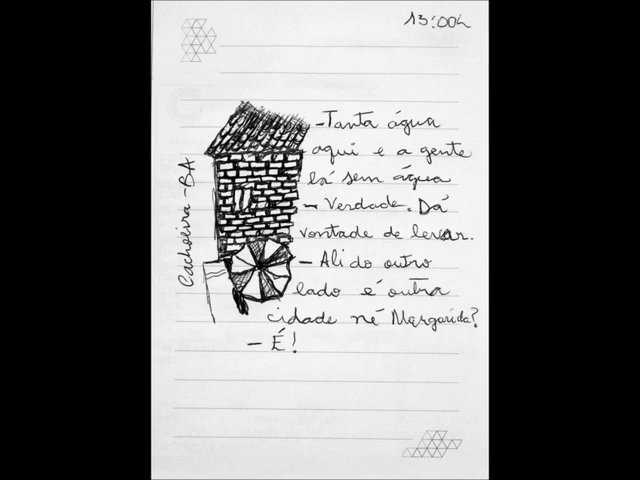 13:00h
-Tanta água
aqui e a gente
lá sem água
- Verdade. Dá
vontade de levar.
- Ali do outro
lado é outra
cidade né Margarida?
- É!
Cachoeira - BA